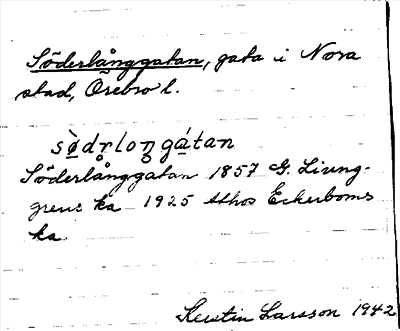 Söderlånggatan, gata i Nora
stad, Örebro l.
sø̀dr̥loŋgátan
Söderlånggatan 1857 G. Ljung-
grens ka 1925 Athos Eckerboms
ka.
Kerstin Larsson 1942